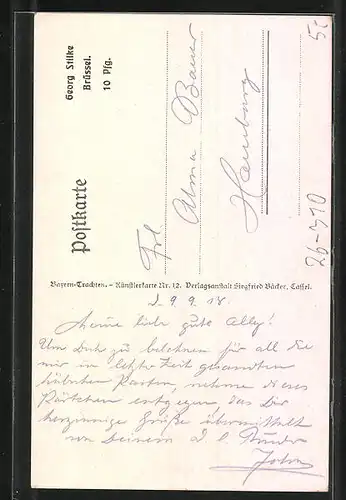 Georg Stilke
Brüssel.
10 Pfg.
Postkarte
Frl
Alma Bauer
Hamburg
5c
26-310
Bayern-Trachten. - Künstlerkarte Nr. 12. Verlagsanstalt Siegfried Bäcker, Cassel.
d. 9.9.18.
Meine liebe gute Ally!
Um Dich zu belohnen für all die
mir in letzter Zeit gesandten
hübschen Karten, nehme dieses
Kärtchen entgegen, das Dir
herzinnige Grüße übermittelt
von Deinem Bruder
John